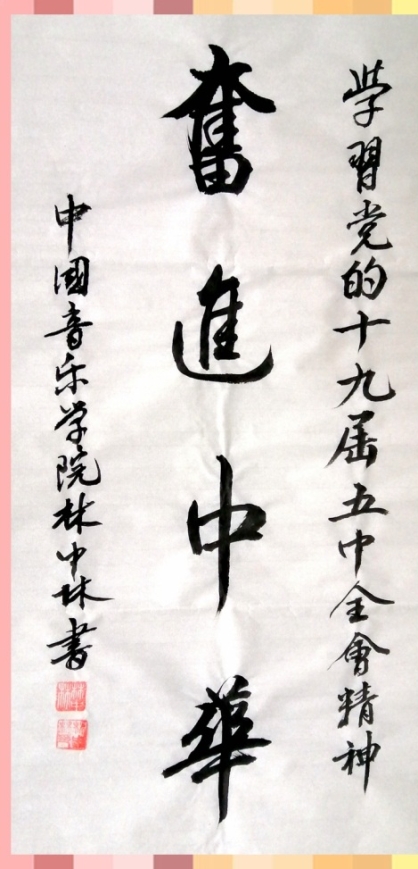 學習党的十九届五中全會精神
奮進中華
中國音乐学院林中林書